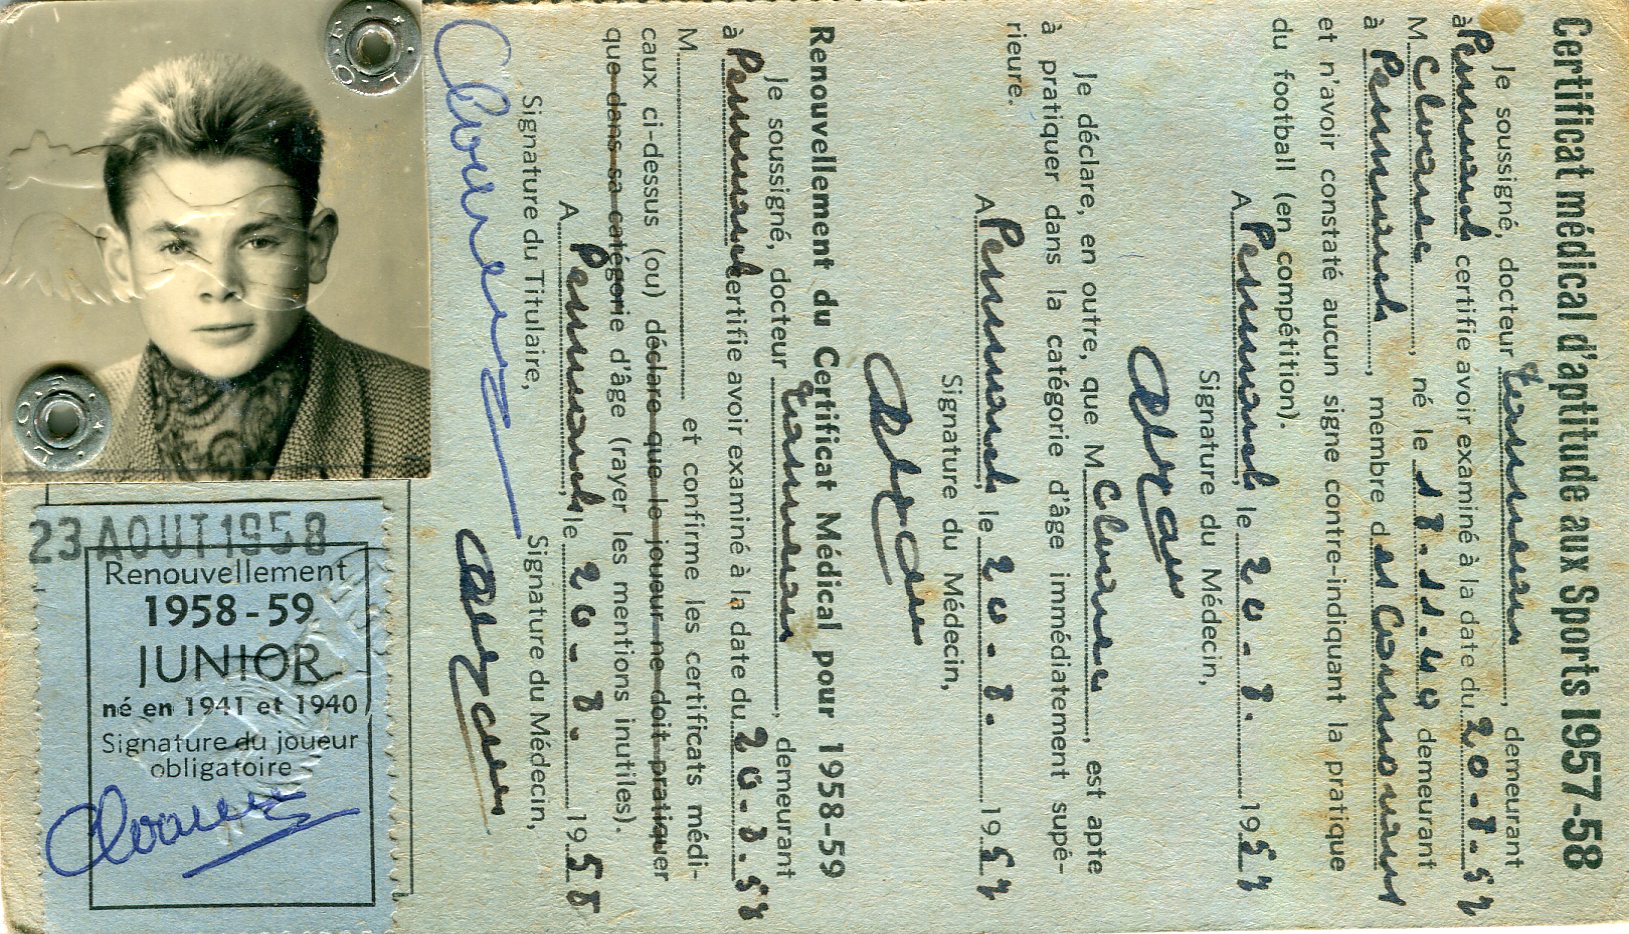 Certificat médical d'aptitude aux Sports 1957-58
Je soussigné, docteur demeurant
à certifie avoir examiné à la date du 20-8-57
M , né le 18.11.40 demeurant
à , membre d
et n'avoir constaté aucun signe contre-indiquant la pratique
du football (en compétition).
A , le 20-8. 1957
Signature du Médecin,
Je déclare, en outre, que M , est apte
à pratiquer dans la catégorie d'âge immédiatement supé-
rieure.
A , le 20-8. 1957
Signature du Médecin,
Renouvellement du Certificat Médical pour 1958-59
Je soussigné, docteur , demeurant
à certifie avoir examiné à la date du 20-8-58
M et confirme les certificats médi-
caux ci-dessus (ou) déclare que le joueur ne doit pratiquer
que dans sa catégorie d'âge (rayer les mentions inutiles).
A , le 20-8- 1958
Signature du Titulaire, Signature du Médecin,
23 AOUT 1958
Renouvellement
1958-59
JUNIOR
né en 1941 et 1940
Signature du joueur
obligatoire